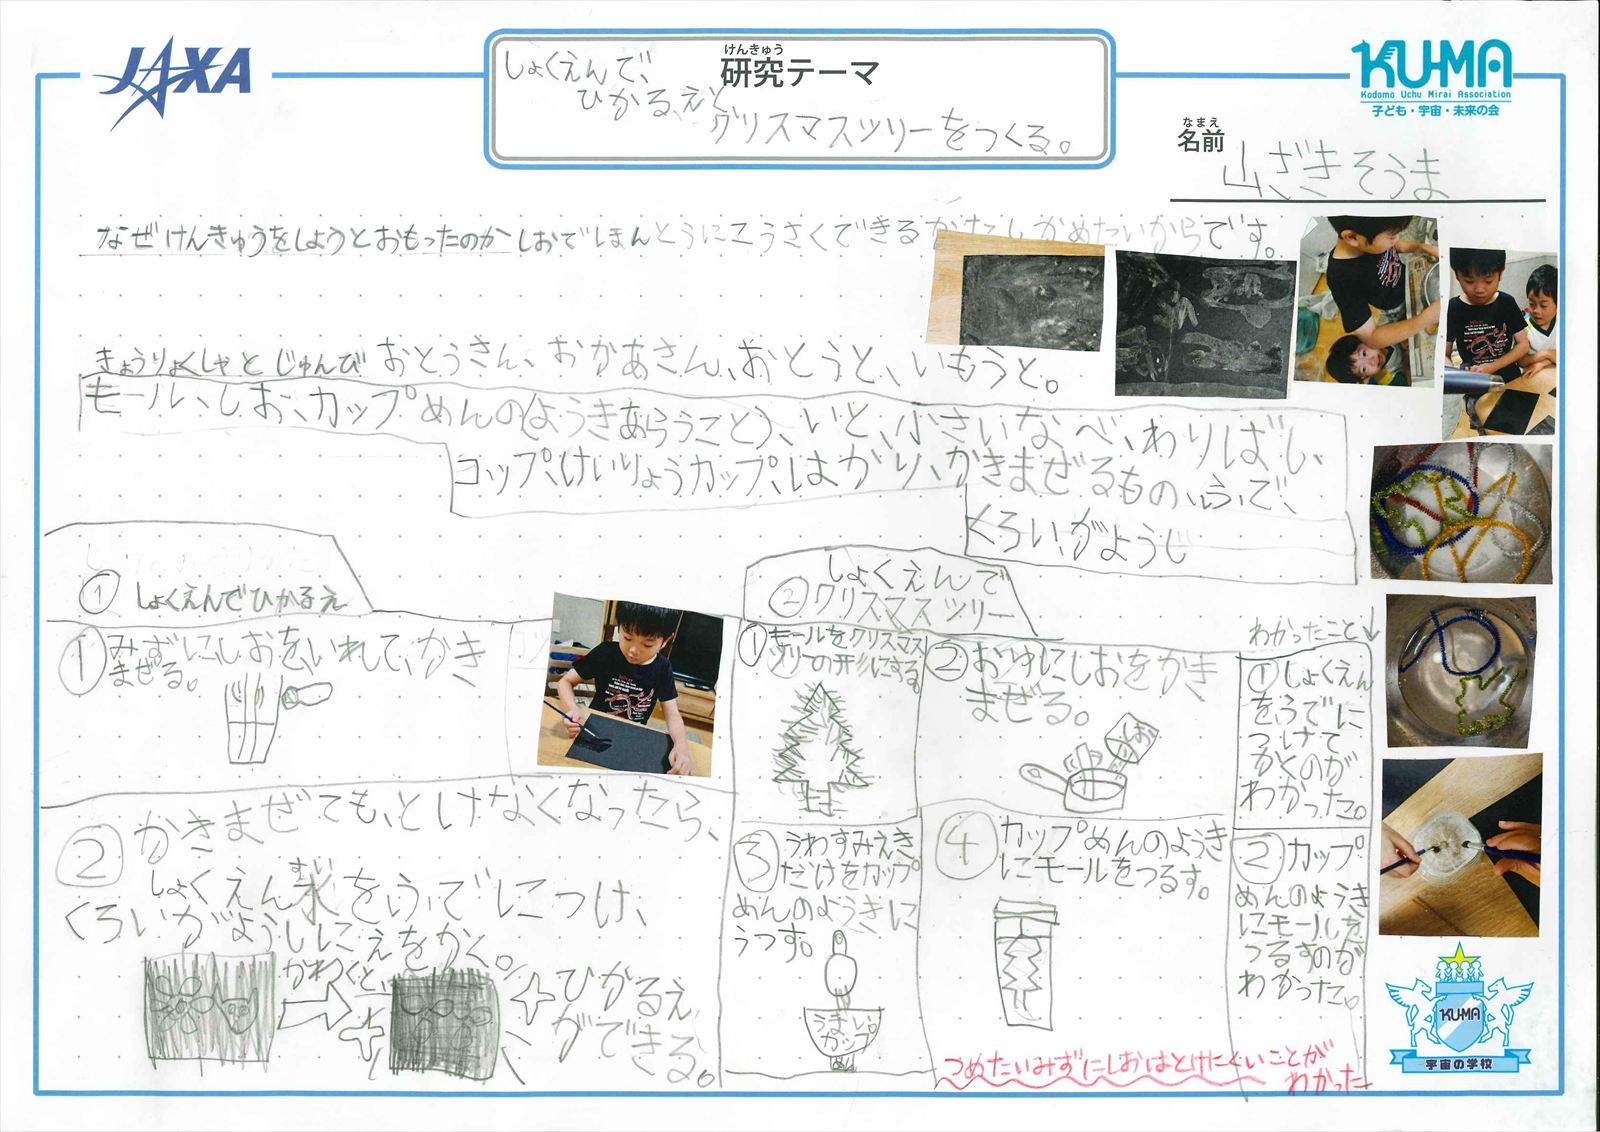 JAXA
けんきゅう
研究テーマ
しょくえんで、
ひかる、えと
クリスマスツリーをつくる。
KU-MA
Kodomo Uchu Mirai Association
子ども・宇宙・未来の会
なまえ
名前
山ざきそうま
なぜけんきゅうをしようとおもったのか しおでほんとうにこうさくできるかたしかめたいからです。
きょうりょくしゃとじゅんび おとうさん、おかあさん、おとうと、いもうと。
モール、しお、カップめんの(ようきあらうこと)、いと、小さいなべ、わりばし
コップ、けいりょうカップ、はがり、かきまぜるもの、ふで、
くろいがようし
① しょくえんでひかるえ
①みずにしおをいれて、かき
まぜる。
②かきまぜても、とけなくなったら、
しょくえん水をふでにつけ、
すい
くろいがようしにえをかく。
かわくと
ひかるえ
ができる。
しょくえんで
②クリスマスツリー
①モールをクリスマス
ツリーの形にする。
②おゆにしおをかき
まぜる。
しお
③うわずみえき
だけをカップ
めんのようきに
うつす。
うまい。
カップ
④カップめんのようき
にモールをつるす。
わかったこと↓
①しょくえん
をふでに
つけて
かくのが
わかった。
②カップ
めんのようき
にモールを
つるすのが
わかった。
つめたいみずにしおはとけにくいことが
わかった
KU-MA
宇宙の学校